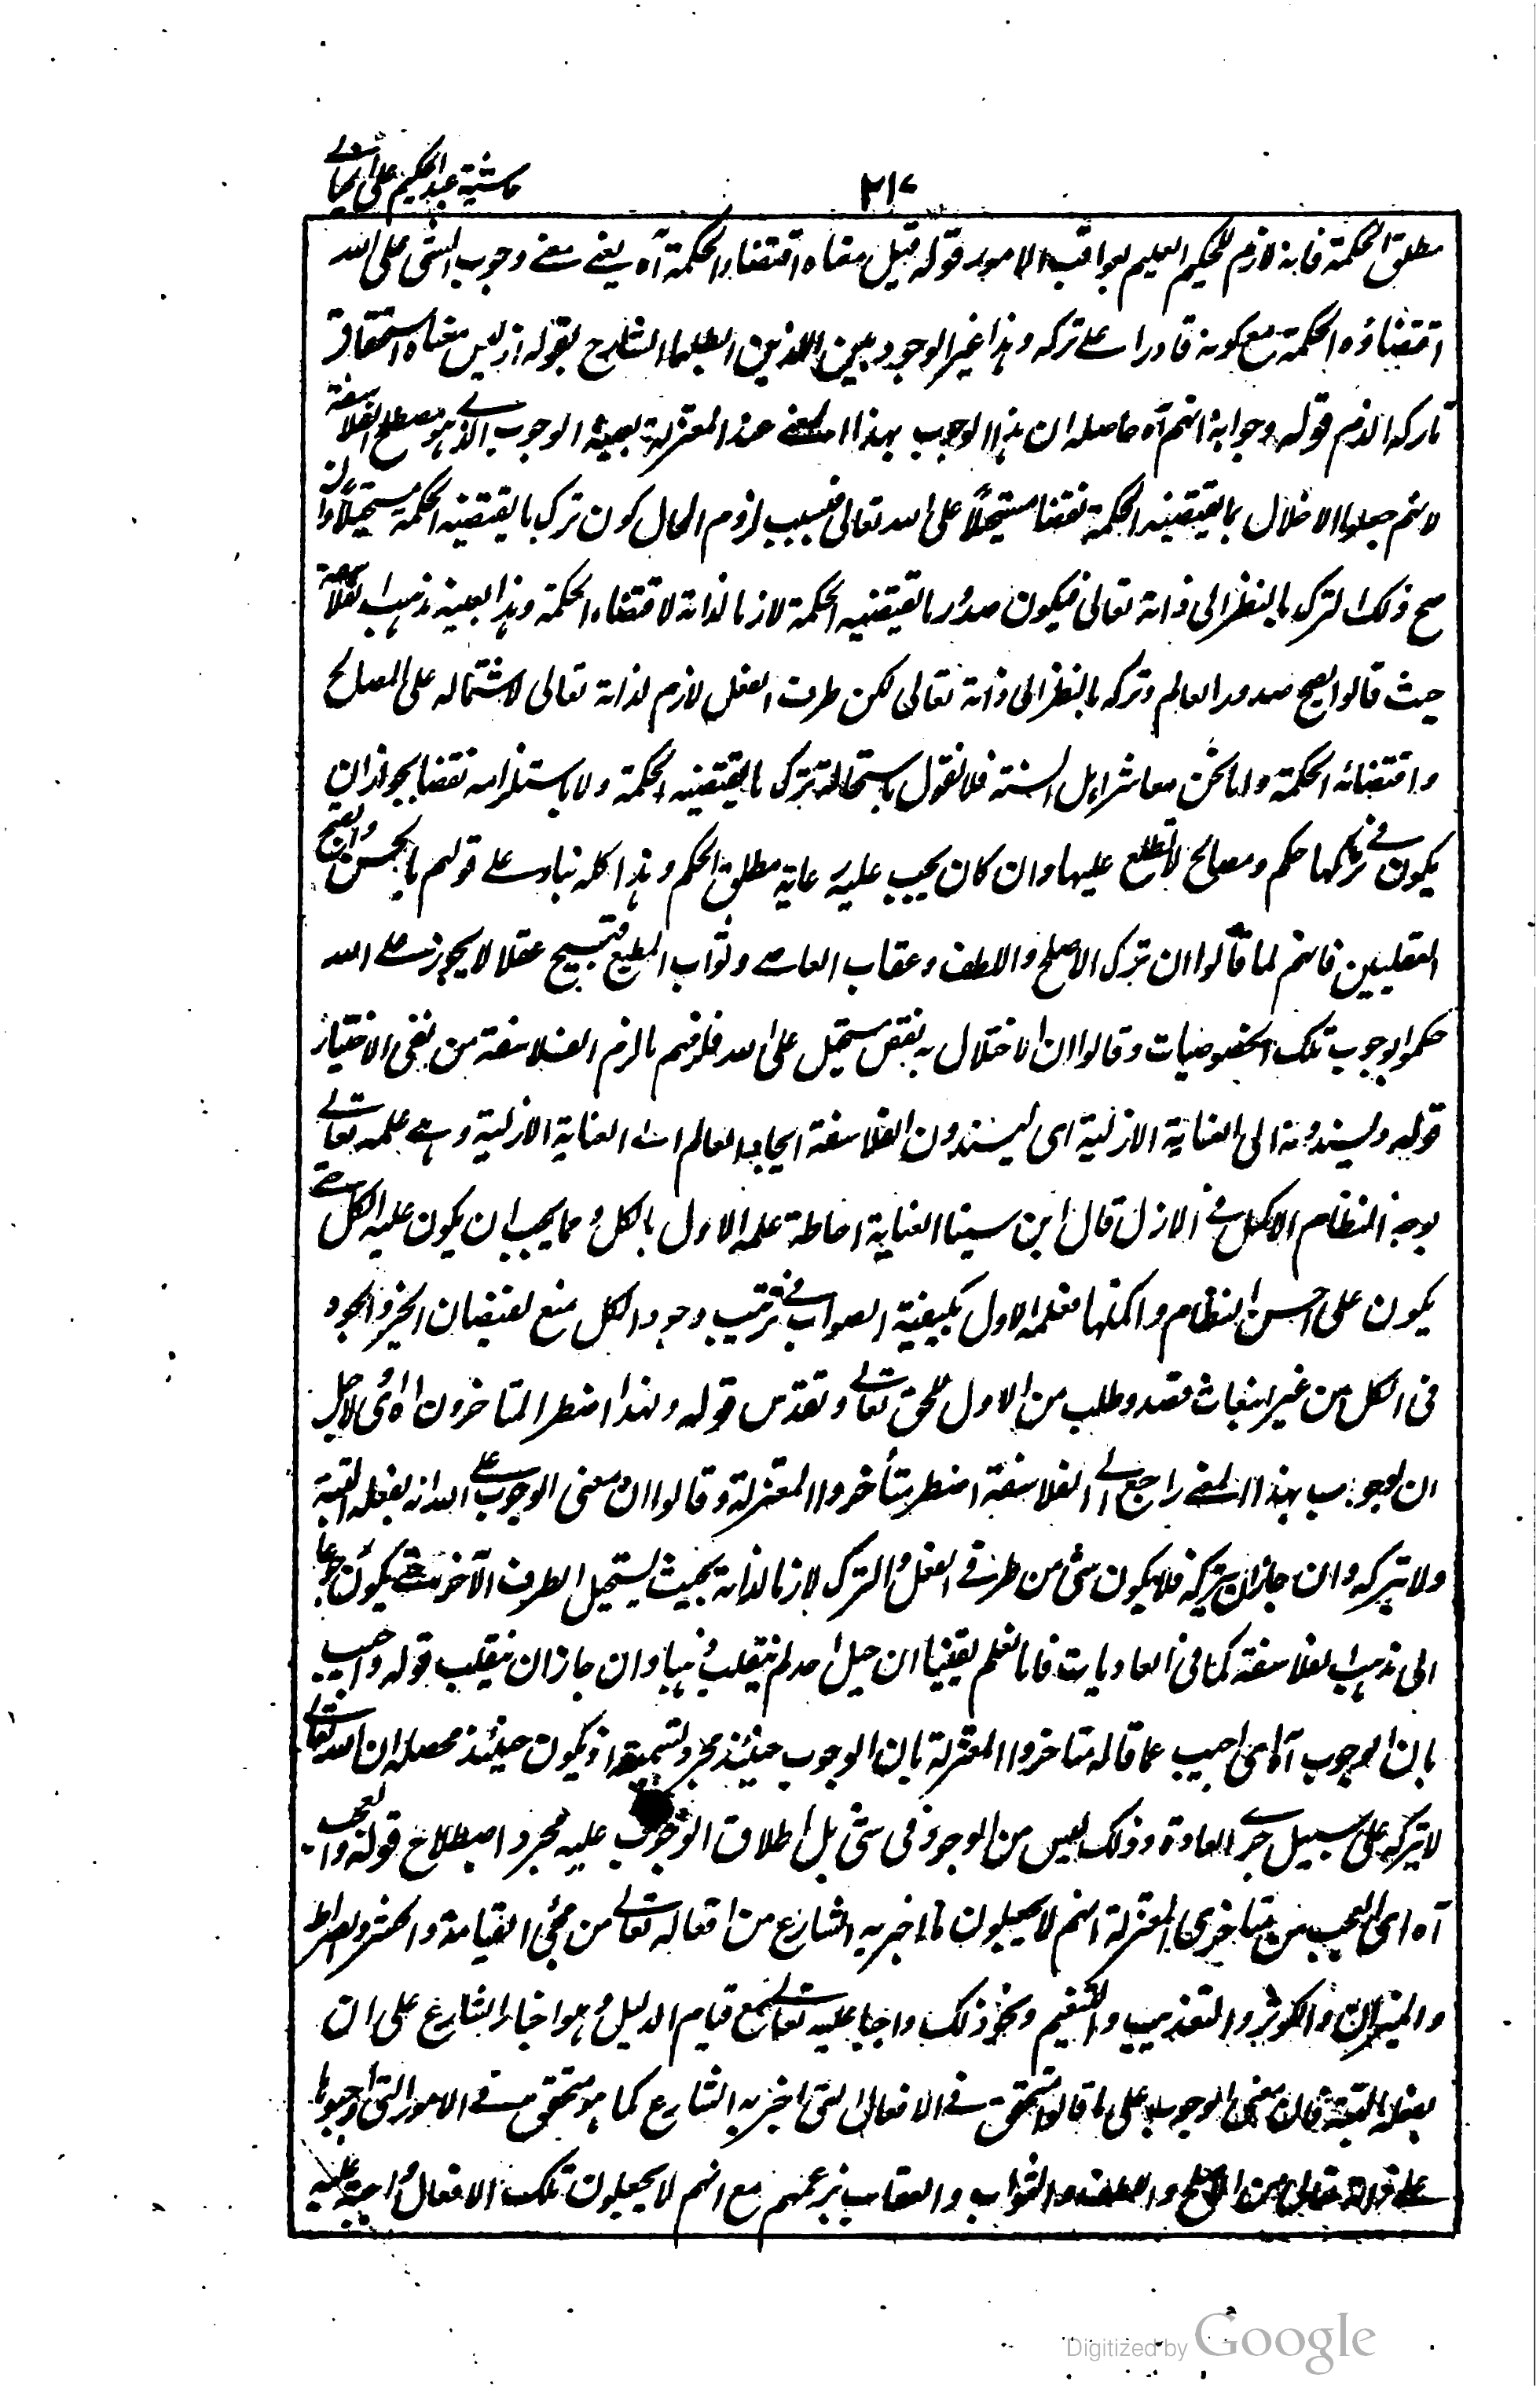 حاشية عبد الحكيم على الخيالي
٢١٧
مطلق الحكمة فانه لازم للحكيم العليم بعواقب الامور قوله قيل معناه اقتضاء الحكمة آه يعني معنى وجوب الشئ على الله
اقتضاؤه الحكمة مع كونه قادرا على تركه وهذا غير الوجوبين الذين ابطلهما الشارح بقوله اذ ليس معناه استحقاق
تاركه الذم قوله وجوابه انهم آه حاصله ان هذا الوجوب بهذا المعنى عند المعتزلة بعينه الوجوب الذي هو مصطلح الفلاسفة
لانهم جعلوا الاخلال بما يقتضيه الحكمة نقصا مستحيلا على الله تعالى فبسبب لزوم المحال كون ترك ما يقتضيه الحكمة مستحيلا وان
صح ذلك الترك بالنظر الى ذاته تعالى فيكون صدور ما يقتضيه الحكمة لازما لذاته لاقتضاء الحكمة وهذا بعينه مذهب الفلاسفة
حيث قالوا يصح صدور العالم وتركه بالنظر الى ذاته تعالى لكن طرف الفعل لازم لذاته تعالى لاشتماله على المصالح
واقتضائه الحكمة واما نحن معاشر اهل السنة فلا نقول باستحالة ترك ما يقتضيه الحكمة ولا باستلزامه نقصا بجواز ان
يكون في تركها حكم ومصالح لا نطلع عليها وان كان يجب عليه رعاية مطلق الحكم وهذا كله بناء على قولهم بالحسن والقبح
العقليين فانهم لما قالوا ان ترك الاصلح واللطف وعقاب العاصي وثواب المطيع قبيح عقلا لا يجوز على الله
حكموا بوجوب تلك الخصوصيات وقالوا ان الاخلال به نقص مستحيل على الله فلزمهم ما لزم الفلاسفة من نفى الاختيار
قوله ويسندونه الى العناية الازلية اى يسندون الفلاسفة ايجاد العالم الى العناية الازلية وهي علمه تعالى
بوجه النظام الاكمل في الازل قال ابن سينا العناية احاطة علم الاول بالكل وبما يجب ان يكون عليه الكل حتى
يكون على احسن النظام واكملها فعلم الاول بكيفية الصواب في ترتيب وجود الكل منبع لفيضان الخير والجود
فى الكل من غير انبعاث قصد وطلب من الاول الحق تعالى وتقدس قوله ولهذا اضطر المتاخرون آه اى لاجل
ان الوجوب بهذا المعنى راجع الى الفلاسفة اضطر متأخروا المعتزلة وقالوا ان معنى الوجوب على الله انه يفعله البتة
ولا يتركه وان جاز ان يتركه فلا يكون شئ من طرفي الفعل والترك لازما لذاته بحيث يستحيل الطرف الآخر حتى يكون رجوعا
الى مذهب الفلاسفة كما فى العاديات فانا نعلم يقينا ان جبل احد لم ينقلب ذهبا وان جاز ان ينقلب قوله واجيب
بان الوجوب آه اى اجيب عما قاله متاخروا المعتزلة بان الوجوب حينئذ مجرد تسمية اذ يكون حينئذ محصله ان الله تعالى
لا يتركه على سبيل جرى العادة وذلك ليس من الوجوب فى شئ بل اطلاق الوجوب عليه مجرد اصطلاح قوله والعجب
آه اى العجب من متاخرى المعتزلة انهم لا يجعلون ما اخبر به الشارع من افعاله تعالى من مجئ القيامة والحشر والصراط
والميزان والكوثر والتعذيب والتنعيم ونحو ذلك واجبا عليه تعالى مع قيام الدليل وهو اخبار الشارع على ان
يفعله البتة فان معنى الوجوب على ما قالوا متحقق في الافعال التى اخبر به الشارع كما هو متحقق في الامور التى اوجبوها
على الله تعالى من الاصلح واللطف والثواب والعقاب بزعمهم مع انهم لا يجعلون تلك الافعال واجبة عليه
Digitized by Google